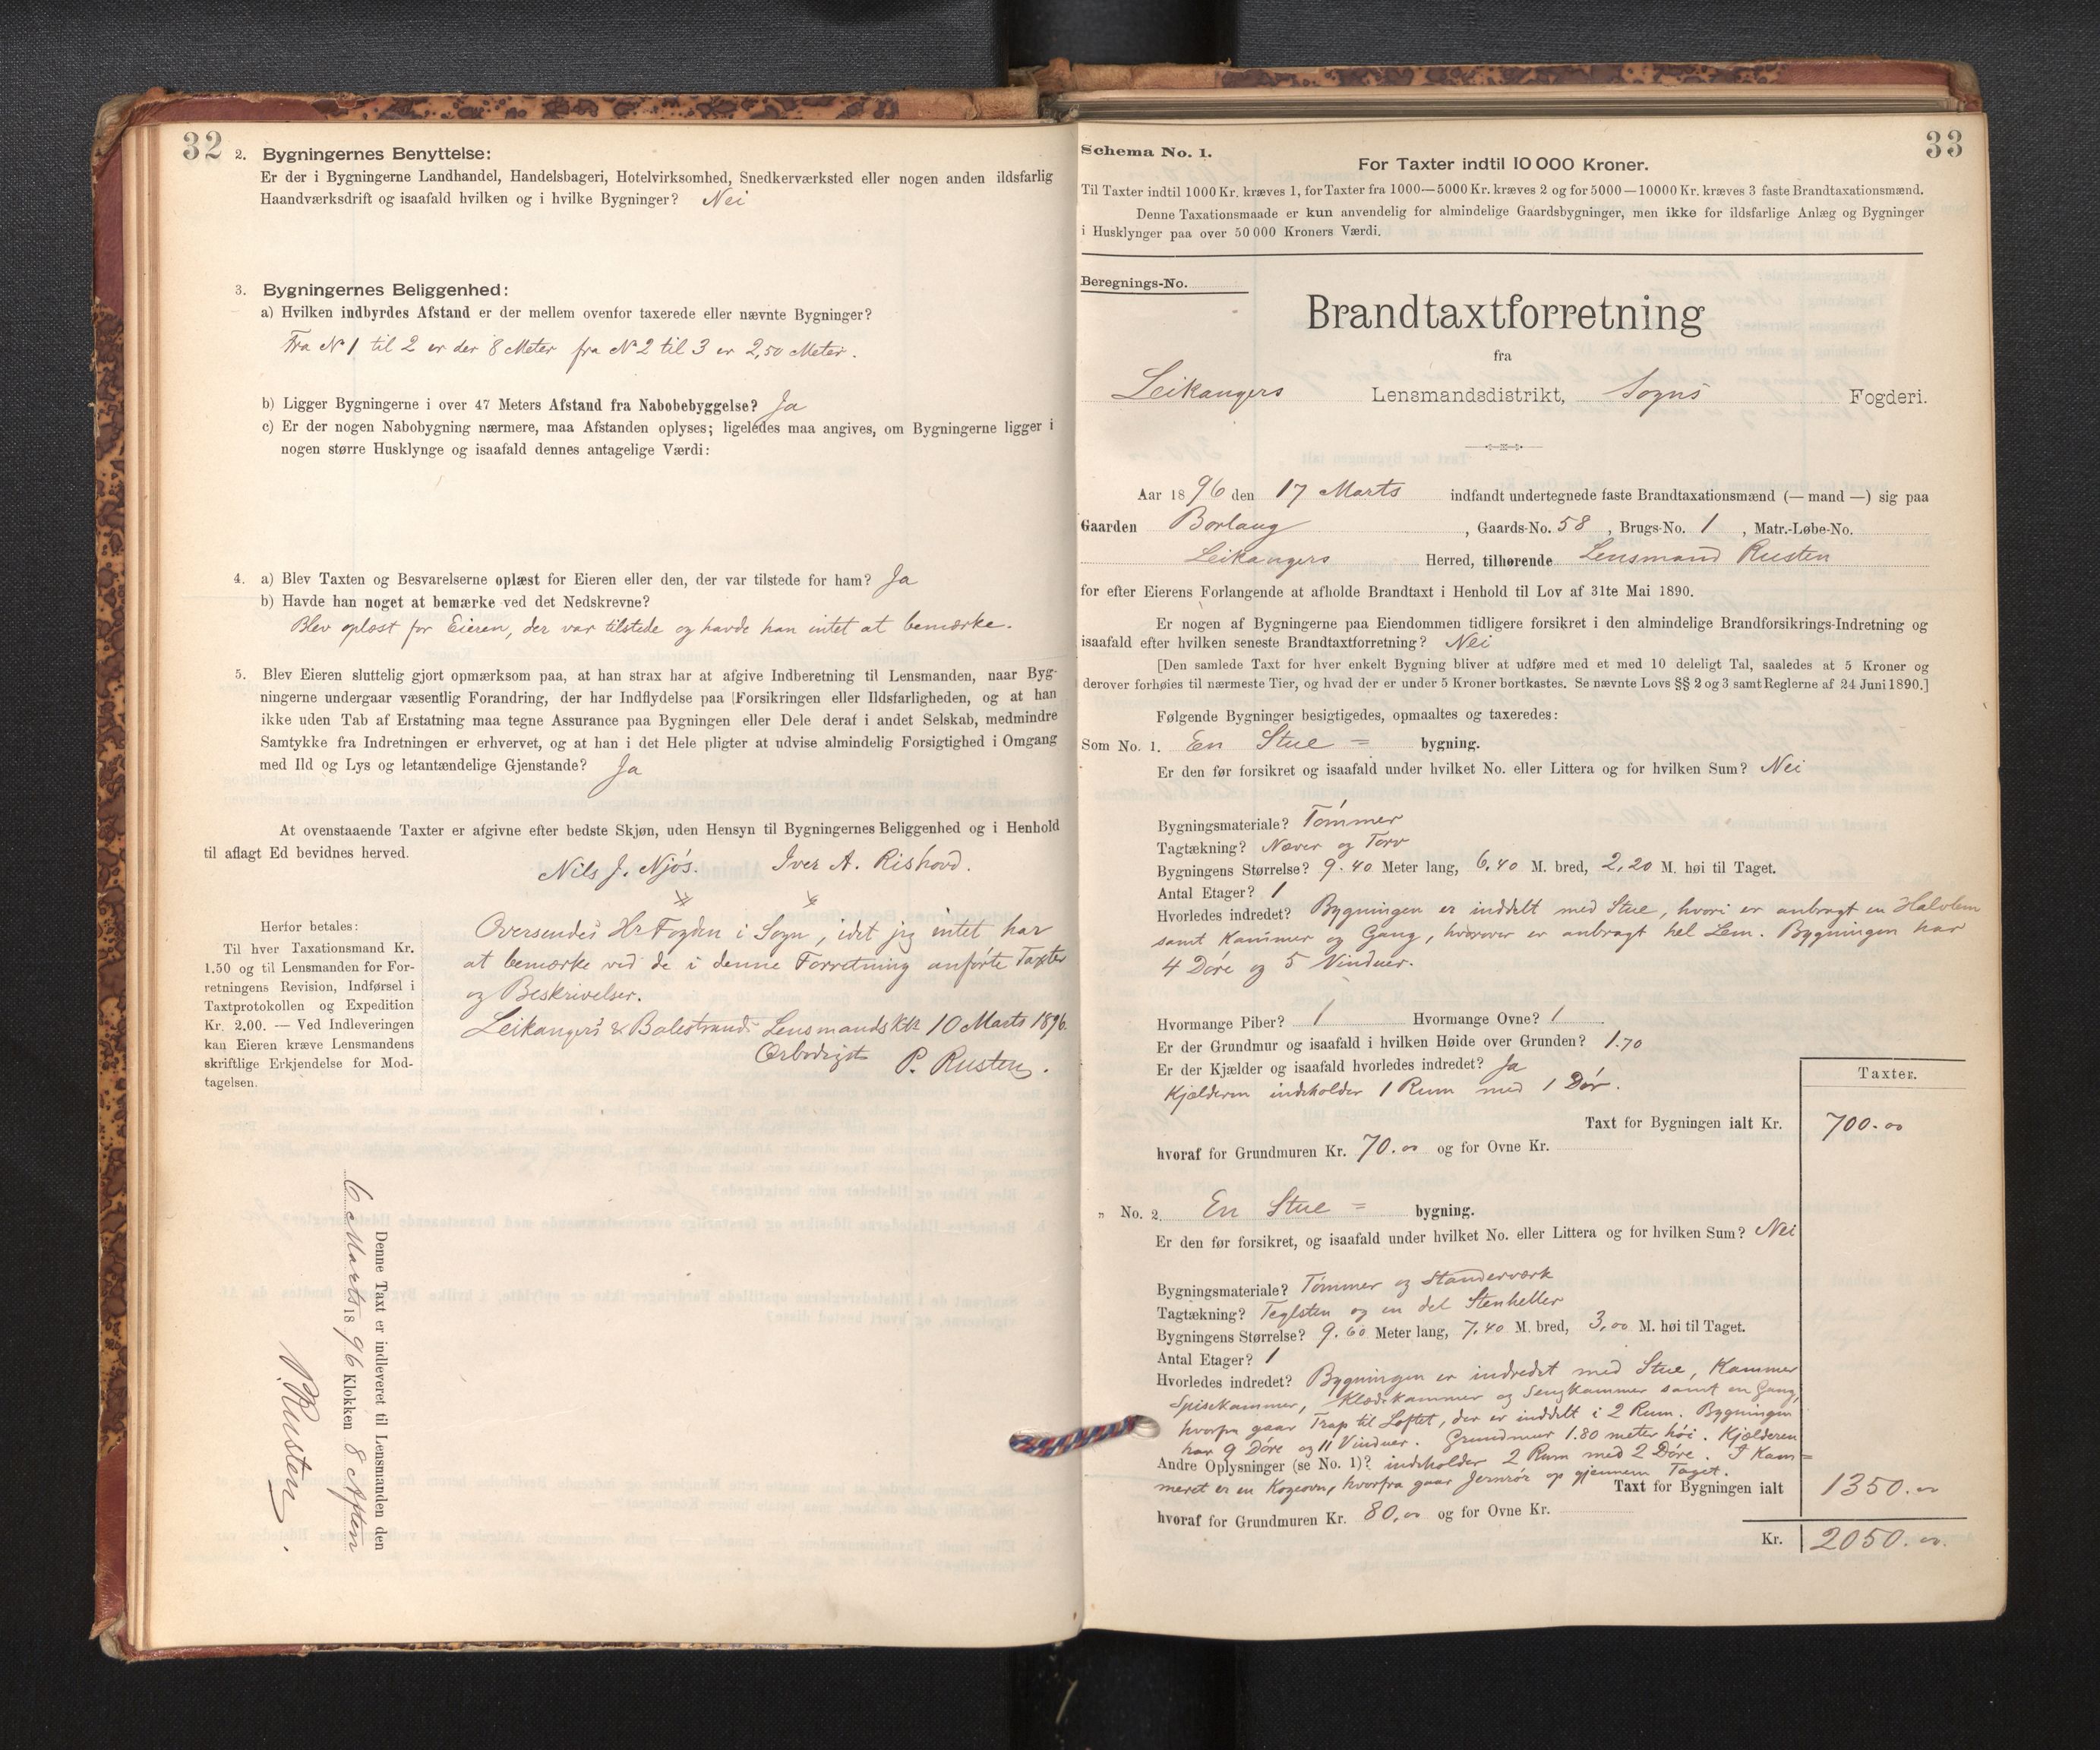 32
2. Bygningernes Benyttelse:
Er der i Bygningerne Landhandel, Handelsbageri, Hotelvirksomhed, Snedkerværksted eller nogen anden ildsfarlig
Haandværksdrift og isaafald hvilken og i hvilke Bygninger? Nei
3. Bygningernes Beliggenhed:
a) Hvilken indbyrdes Afstand er der mellem ovenfor taxerede eller nævnte Bygninger?
Fra No 1 til 2 er der 8 Meter fra No 2 til 3 er 2,50 Meter.
b) Ligger Bygningerne i over 47 Meters Afstand fra Nabobebyggelse? Ja
c) Er der nogen Nabobygning nærmere, maa Afstanden oplyses; ligeledes maa angives, om Bygningerne ligger i
nogen større Husklynge og isaafald dennes antagelige Værdi:
4. a) Blev Taxten og Besvarelserne oplæst for Eieren eller den, der var tilstede for ham? Ja
b) Havde han noget at bemærke ved det Nedskrevne?
Blev oplæst for Eieren, der var tilstede og havde han intet at bemærke.
5. Blev Eieren sluttelig gjort opmærksom paa, at han strax har at afgive Indberetning til Lensmanden, naar Byg-
ningerne undergaar væsentlig Forandring, der har Indflydelse paa Forsikringen eller Ildsfarligheden, og at han
ikke uden Tab af Erstatning maa tegne Assurance paa Bygningen eller Dele deraf i andet Selskab, medmindre
Samtykke fra Indretningen er erhvervet, og at han i det Hele pligter at udvise almindelig Forsigtighed i Omgang
med Ild og Lys og letantændelige Gjenstande? Ja
At ovenstaaende Taxter er afgivne efter bedste Skjøn, uden Hensyn til Bygningernes Beliggenhed og i Henhold
til aflagt Ed bevidnes herved.
Nils J. Njøs. Iver A. Rishovd.
Herfor betales:
Til hver Taxationsmand Kr.
1.50 og til Lensmanden for For-
retningens Revision, Indførsel i
Taxtprotokollen og Expedition
Kr. 2.00. — Ved Indleveringen
kan Eieren kræve Lensmandens
skriftlige Erkjendelse for Mod-
tagelsen.
Oversendes Hr Fogden i Sogn, idet jeg intet har
at bemærke ved de i denne Forretning anførte Taxter
og Beskrivelser.
Leikangers & Balestrands Lensmandsktr 10 Marts 1896.
Ærbødigst P. Rusten.
Denne Taxt er indleveret til Lensmanden den
6 Marts 1896 Klokken 8 Aften
P. Rusten.
33
Schema No. 1.
For Taxter indtil 10 000 Kroner.
Til Taxter indtil 1000 Kr. kræves 1, for Taxter fra 1000—5000 Kr. kræves 2 og for 5000—10000 Kr. kræves 3 faste Brandtaxationsmænd.
Denne Taxationsmaade er kun anvendelig for almindelige Gaardsbygninger, men ikke for ildsfarlige Anlæg og Bygninger
i Husklynger paa over 50 000 Kroners Værdi.
Beregnings-No.
Brandtaxtforretning
fra
Leikangers Lensmandsdistrikt, Sogns Fogderi.
Aar 1896 den 17 Marts indfandt undertegnede faste Brandtaxationsmænd (— mand —) sig paa
Gaarden Borlaug, Gaards-No. 58, Brugs-No. 1, Matr.-Løbe-No.
Leikangers Herred, tilhørende Lensmand Rusten
for efter Eierens Forlangende at afholde Brandtaxt i Henhold til Lov af 31te Mai 1890.
Er nogen af Bygningerne paa Eiendommen tidligere forsikret i den almindelige Brandforsikrings-Indretning og
isaafald efter hvilken seneste Brandtaxtforretning? Nei
[Den samlede Taxt for hver enkelt Bygning bliver at udføre med et med 10 deleligt Tal, saaledes at 5 Kroner og
derover forhøies til nærmeste Tier, og hvad der er under 5 Kroner bortkastes. Se nævnte Lovs §§ 2 og 3 samt Reglerne af 24 Juni 1890.]
Følgende Bygninger besigtigedes, opmaaltes og taxeredes:
Som No. 1. En Stue = bygning.
Er den før forsikret og isaafald under hvilket No. eller Littera og for hvilken Sum? Nei
Bygningsmateriale? Tømmer
Tagtækning? Næver og Torv
Bygningens Størrelse? 9.40 Meter lang, 6,40 M. bred, 2,20 M. høi til Taget.
Antal Etager? 1
Hvorledes indredet? Bygningen er inddelt med Stue, hvori er anbragt en Halvlem
samt Kammer og Gang, hvorover er anbragt hel Lem. Bygningen har
4 Døre og 5 Vinduer.
Hvormange Piber? 1 Hvormange Ovne? 1
Er der Grundmur og isaafald i hvilken Høide over Grunden? 1.70
Er der Kjælder og isaafald hvorledes indredet? Ja
Kjælderen indeholder 1 Rum med 1 Dør.
Taxter.
Taxt for Bygningen ialt Kr. 700.00
hvoraf for Grundmuren Kr. 70.00 og for Ovne Kr.
„ No. 2. En Stue = bygning.
Er den før forsikret, og isaafald under hvilket No. eller Littera og for hvilken Sum? Nei
Bygningsmateriale? Tømmer og Standerværk
Tagtækning? Teglsten og en del Stenheller
Bygningens Størrelse? 9.60 Meter lang, 7.40 M. bred, 3,00 M. høi til Taget.
Antal Etager? 1
Hvorledes indredet? Bygningen er indredet med Stue, Kammer
Spisekammer, Klædekammer og Sengkammer samt en Gang,
hvorfra gaar Trap til Loftet, der er inddelt i 2 Rum. Bygningen
har 9 Døre og 11 Vinduer. Grundmur 1.80 meter høi. Kjælderen
Andre Oplysninger (se No. 1)? indeholder 2 Rum med 2 Døre. I Kam=
meret er en Kogeovn, hvorfra gaar Jernrør op gjennem Taget.
Taxt for Bygningen ialt 1350.00
hvoraf for Grundmuren Kr. 80,00 og for Ovne Kr.
Kr. 2050.00